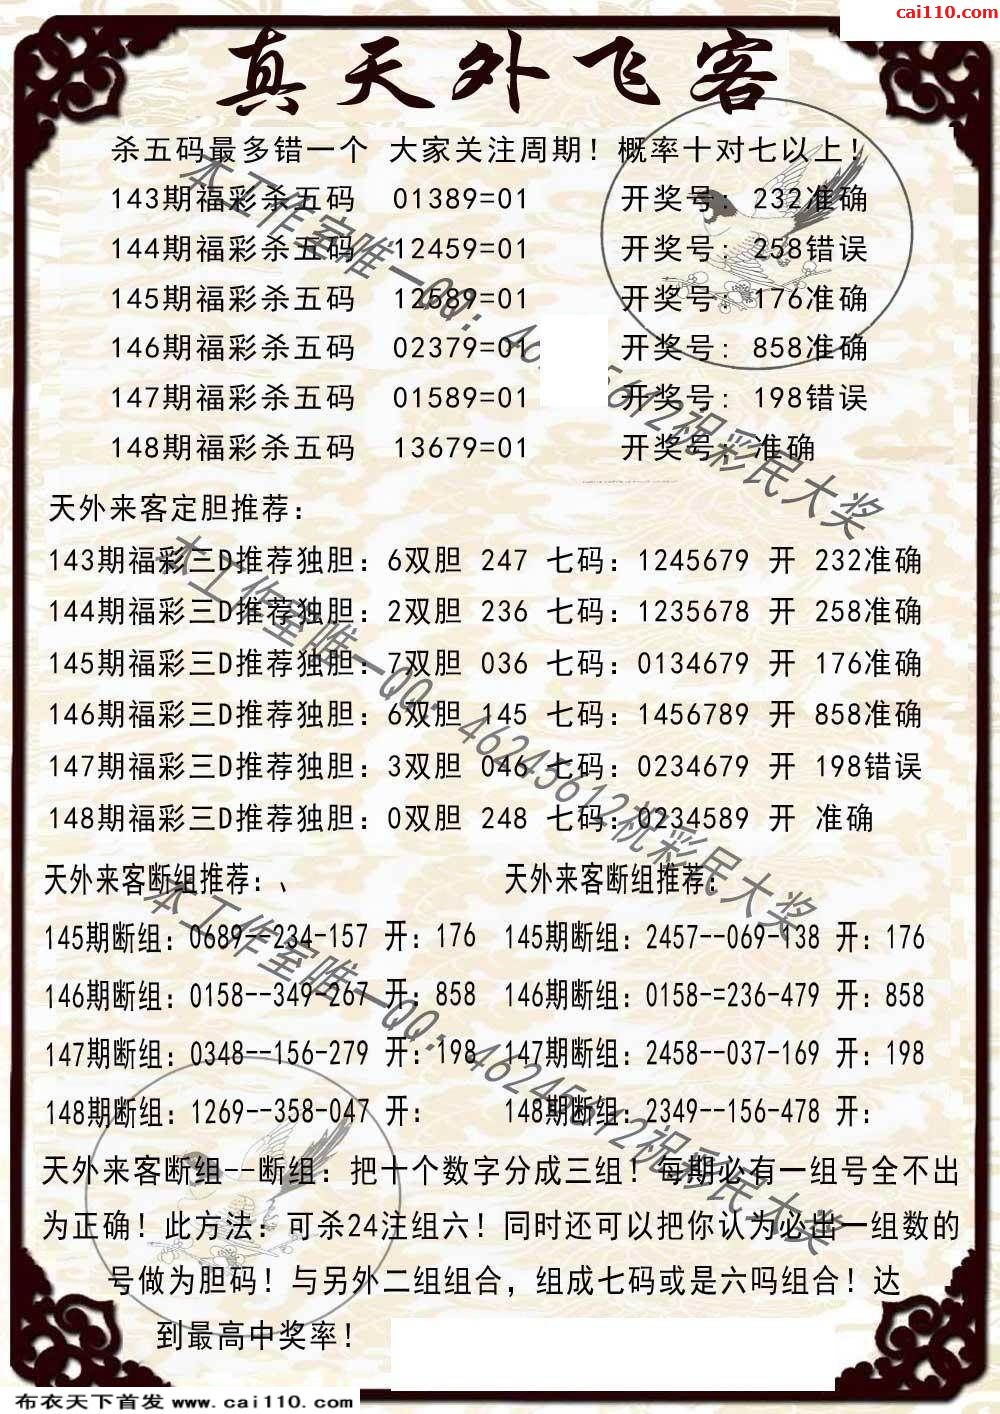 cai110.com
真天外飞客
杀五码最多错一个 大家关注周期！概率十对七以上！
143期福彩杀五码 01389=01 开奖号：232准确
144期福彩杀五码 12459=01 开奖号：258错误
145期福彩杀五码 12589=01 开奖号：176准确
146期福彩杀五码 02379=01 开奖号：858准确
147期福彩杀五码 01589=01 开奖号：198错误
148期福彩杀五码 13679=01 开奖号：准确
本工作室唯一QQ：46 5612祝彩民大奖
天外来客定胆推荐：
143期福彩三D推荐独胆：6双胆 247 七码：1245679 开 232准确
144期福彩三D推荐独胆：2双胆 236 七码：1235678 开 258准确
145期福彩三D推荐独胆：7双胆 036 七码：0134679 开 176准确
146期福彩三D推荐独胆：6双胆 145 七码：1456789 开 858准确
147期福彩三D推荐独胆：3双胆 046 七码：0234679 开 198错误
148期福彩三D推荐独胆：0双胆 248 七码：0234589 开 准确
本工作室唯一QQ：46245612祝彩民大奖
天外来客断组推荐：、 天外来客断组推荐：
145期断组：0689--234-157 开：176 145期断组：2457--069-138 开：176
146期断组：0158--349-267 开：858 146期断组：0158-=236-479 开：858
147期断组：0348--156-279 开：198 147期断组：2458--037-169 开：198
148期断组：1269--358-047 开： 148期断组：2349--156-478 开：
本工作室唯一QQ：46245612祝彩民大奖
天外来客断组--断组：把十个数字分成三组！每期必有一组号全不出
为正确！此方法：可杀24注组六！同时还可以把你认为必出一组数的
号做为胆码！与另外二组组合，组成七码或是六吗组合！达
到最高中奖率！
布衣天下首发 www.cai110.com